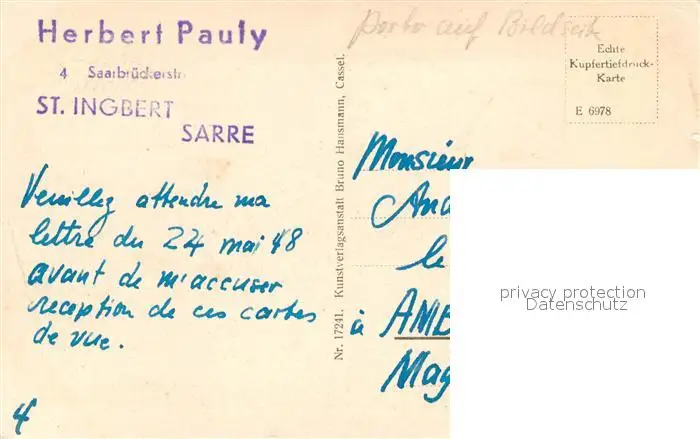 Herbert Pauly
4 Saarbrückerstr.
ST. INGBERT
SARRE
Porto auf Bildseite
Echte
Kupfertiefdruck-
Karte
E 6978
Nr. 17241. Kunstverlagsanstalt Bruno Hansmann, Cassel.
Veuillez attendre ma
lettre du 24 mai 48
avant de m'accuser
reception de ces cartes
de vue.
4
Monsieur
And
le
à AMB
May
privacy protection
Datenschutz